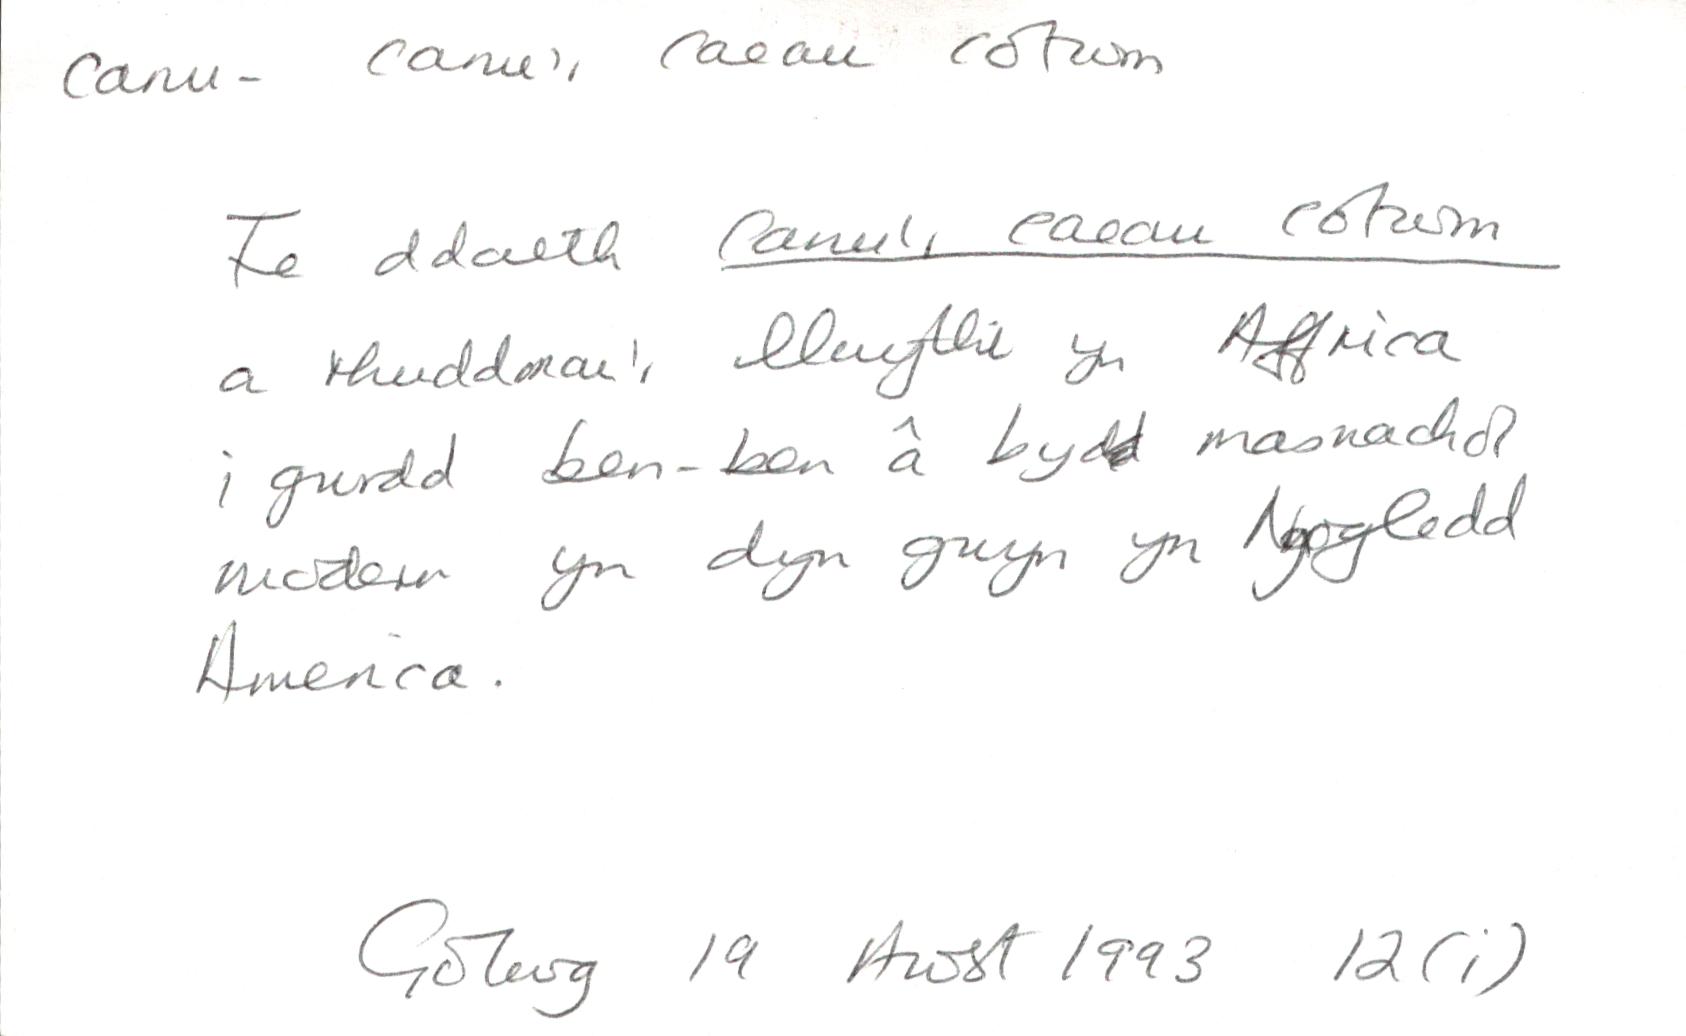 canu- canu'r caeau cotwm
Fe ddaeth canu'r caeau cotwm
a rhuddmau'r llwythi yn Affrica
i gwrdd ben-ben â bydd masnachol
modern yn dyn gwyn yn Ngogledd
America.
Golwg 19 Awst 1993 12(i)